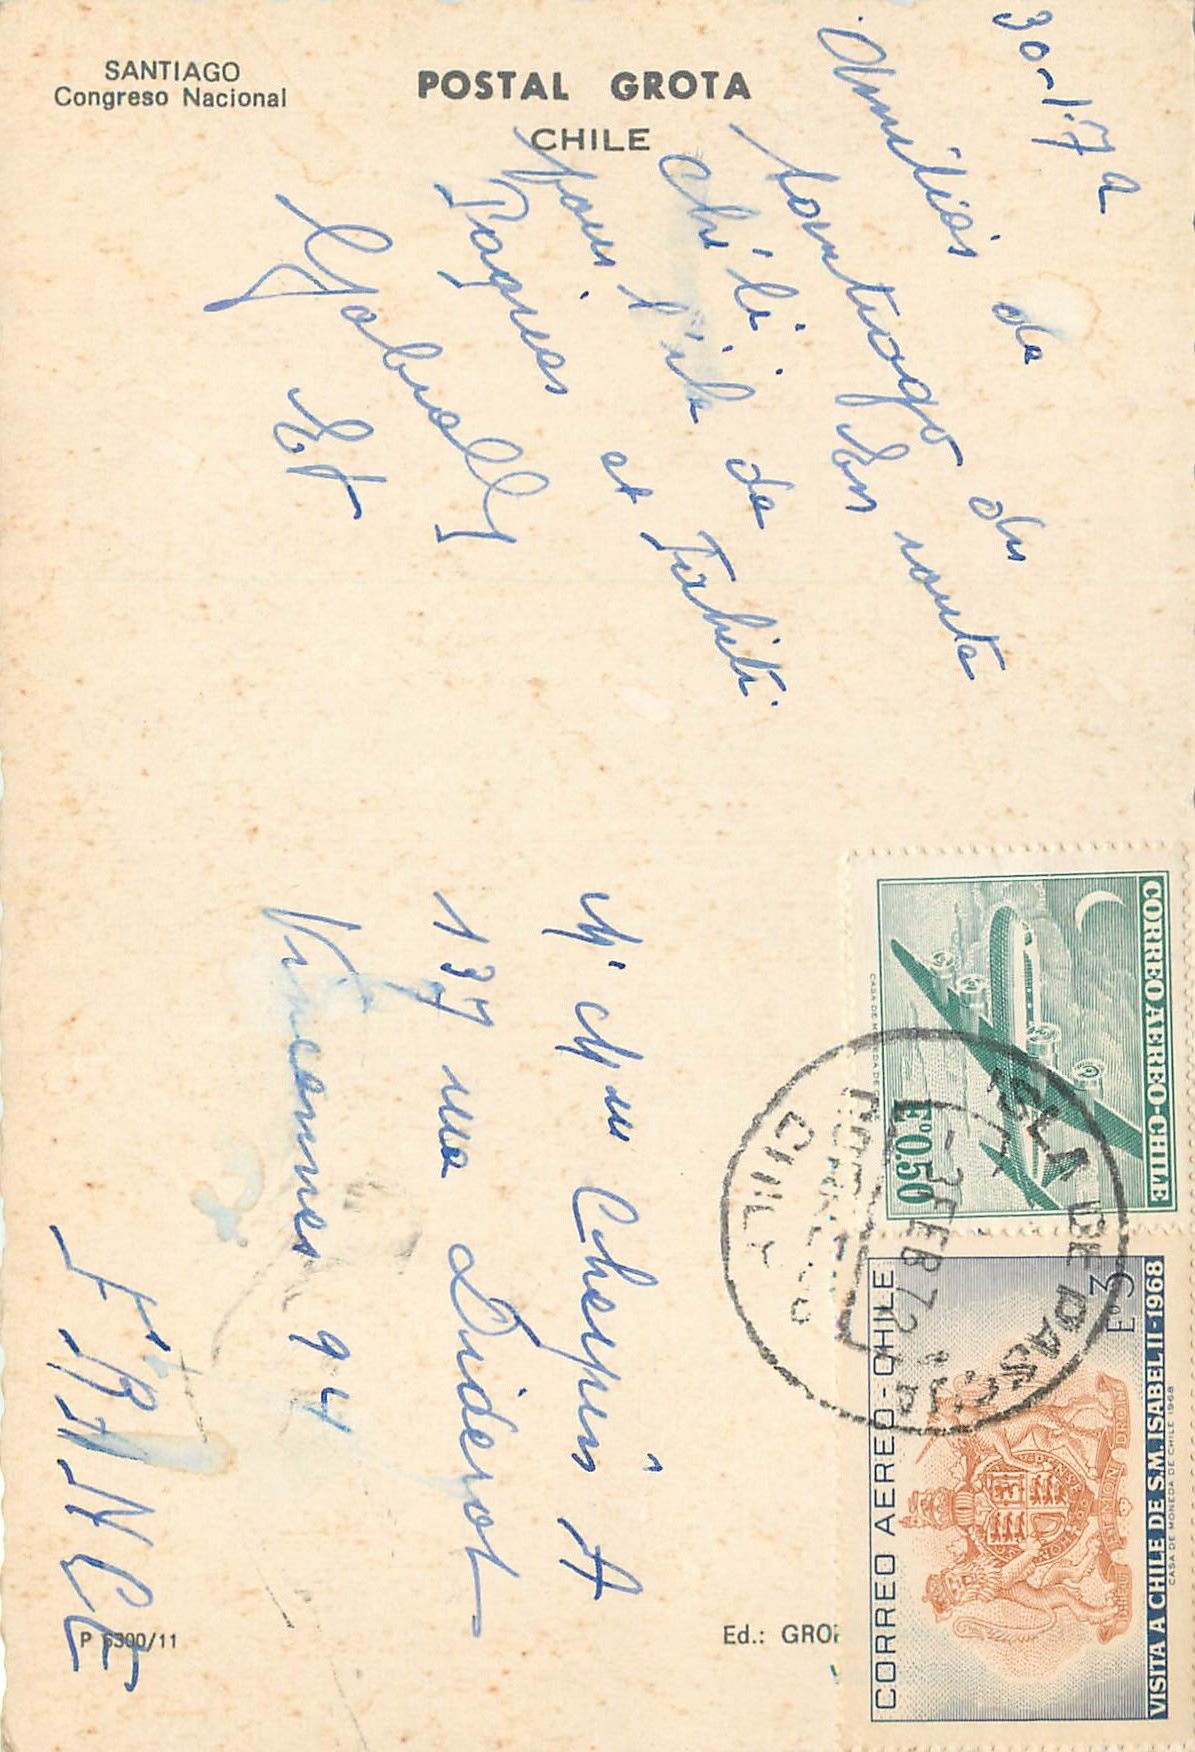 SANTIAGO
Congreso Nacional
POSTAL GROTA
CHILE
30-1-72
Amitiés de
Santiago du
Chili. En route
pour l'île de
Pâques et Tahiti.
M' Mme Chespin A
137 rue Diderot
Vincennes 94
FRANCE
P 6300/11
Ed.: GRO
CORREO AEREO-CHILE
Eº0,50
CASA DE MONEDA DE
CORREO AEREO-CHILE
Eº3
VISITA A CHILE DE S.M. ISABEL II-1968
CASA DE MONEDA DE CHILE 1968
DIEU ET MON DROIT
ISLA DE PASCUA
-3 FEB 72
CHILE